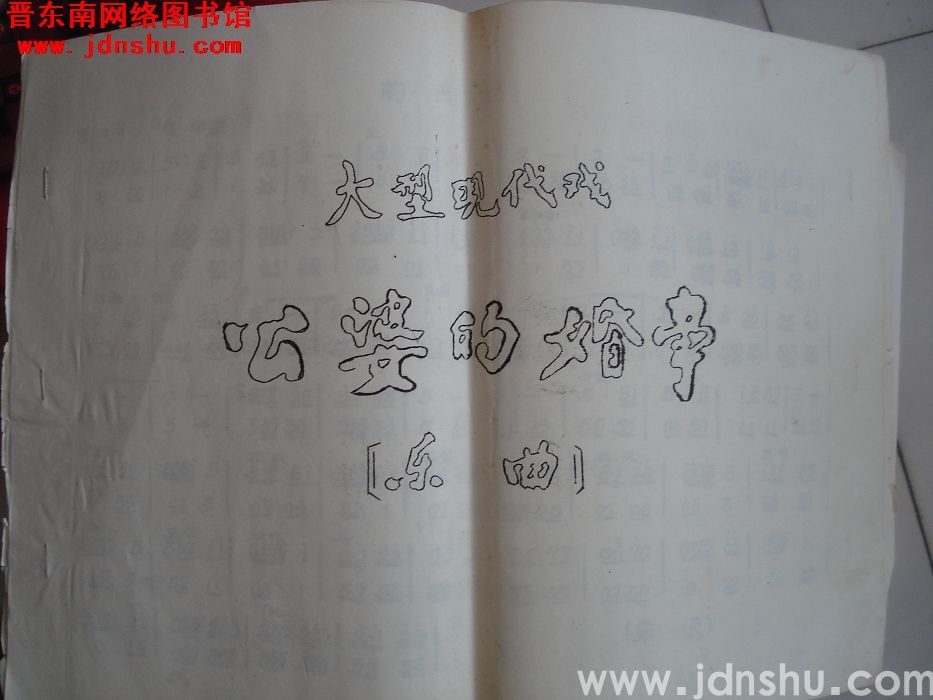 晋东南网络图书馆
www.jdnshu.com
大型现代戏
公婆的婚事
[乐 曲]
www.jdnshu.com